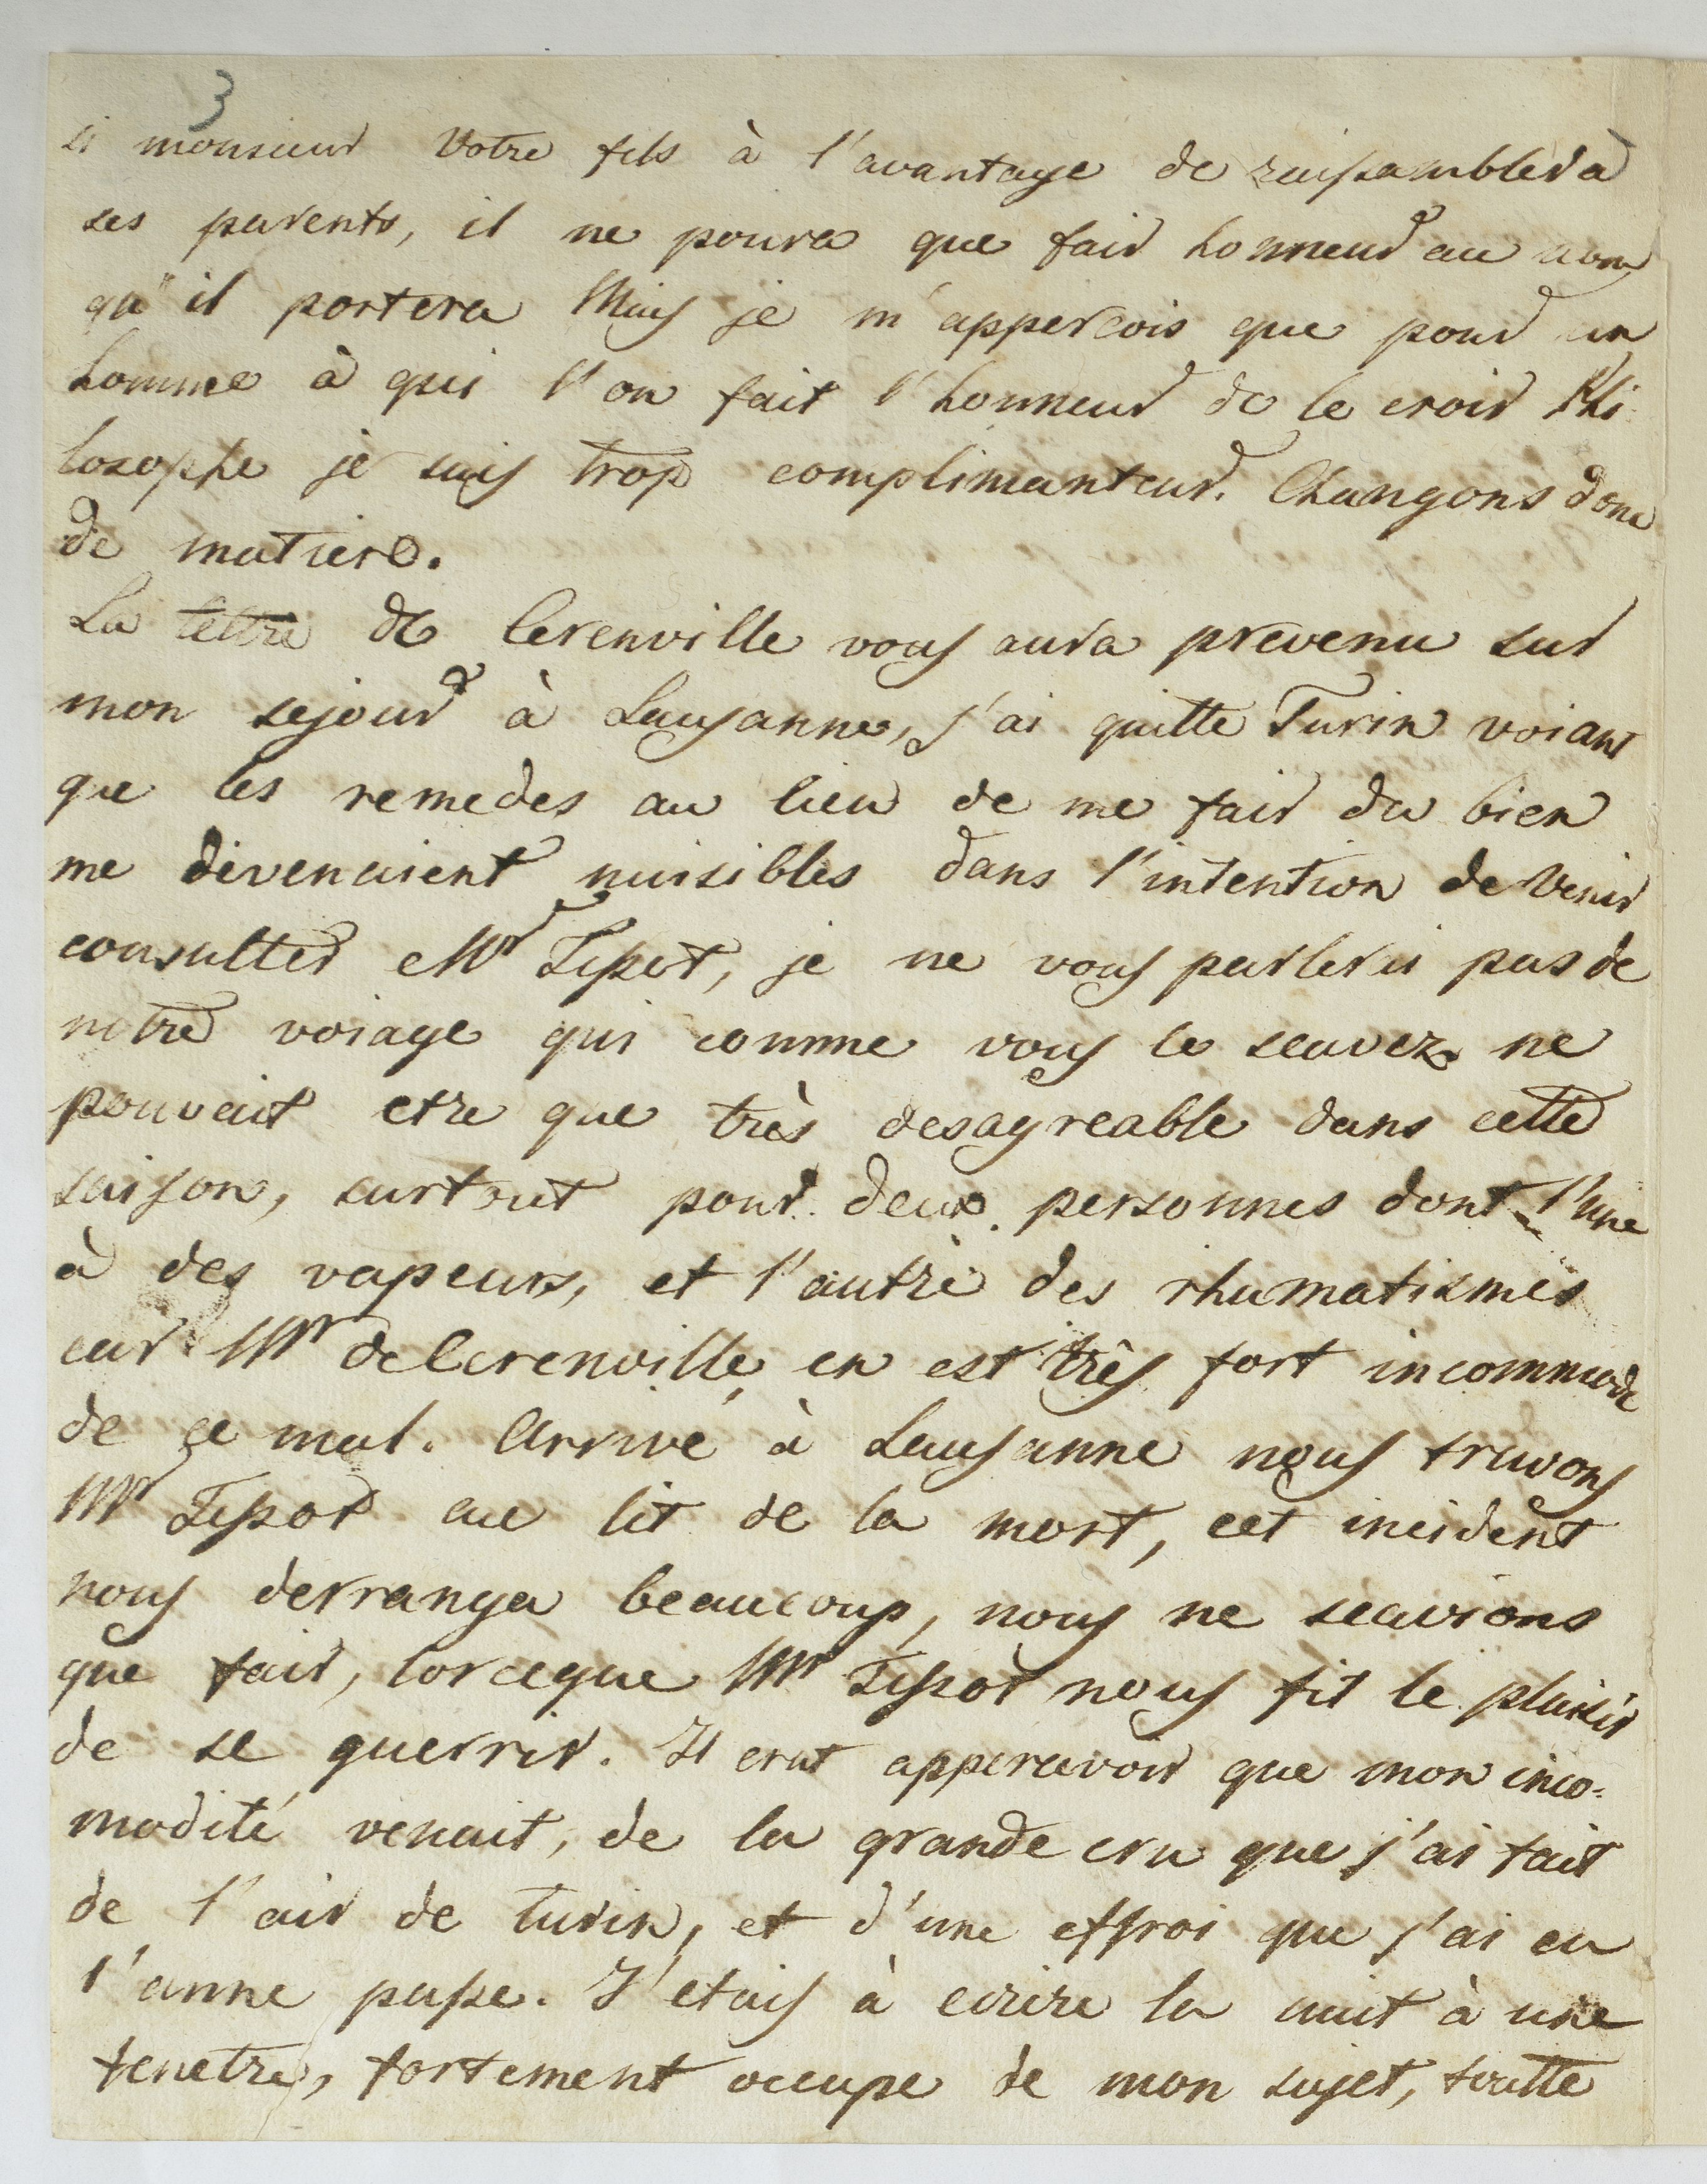 3
si monsieur votre fils à l'avantage de raissambler à
ses parents, il ne poura que fair honneur au nom
qu'il portera Mais je m'appercois que pour un
homme à qui l'on fait l'honneur de le croir Phi
losophe je suis trop complimanteur. Changons donc
de matiere.
La lettre de Cerenville vous aura prevenu sur
mon sejour à Lausanne, j'ai quitte Turin voiant
que les remedes au lieu de me fair du bien
me devenaient nuisibles dans l'intention de venir
consulter Mr Tissot, je ne vous parlerai pas de
notre voiage qui comme vous le scavez ne
pouvait etre que très desagreable dans cette
saison, surtout pour deux personnes dont l'une
à des vapeurs, et l'autre des rhumatismes
car Mr de Cerenville en est très fort incommode
de ce mal. Arrivé à Lausanne nous truvons
Mr Tissot au lit de la mort, cet incident
nous derrangea beaucoup, nous ne scavions
que fair, lorceque Mr Tissot nous fit le plaisir
de se guerrir. Il crut appercevoir que mon inco=
modité venait, de la grande cru que j'ai fait
de l'air de turin, et d'une effroi que j'ai eu
l'anne passe. J'etais à ecrire la nuit à une
fenetre, fortement occupe de mon sujet, toutte